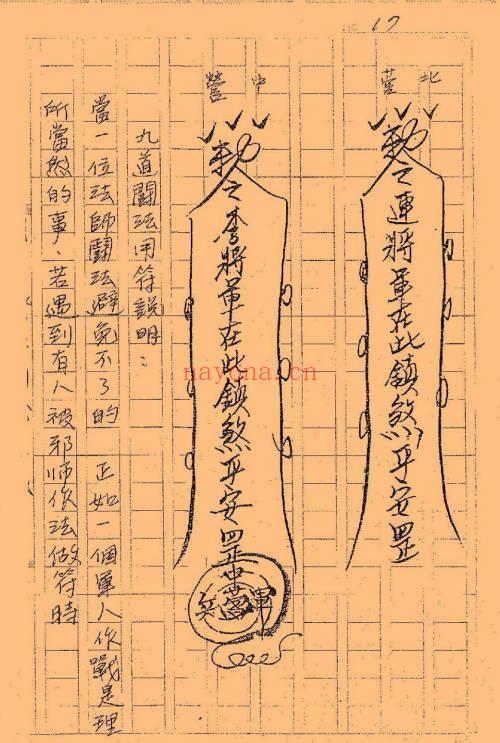 17
北營
勅令連將軍在此鎮煞平安罡
中營
勅令李將軍在此鎮煞平安罡
兵 軍
九道鬪法用符說明：
當一位法師鬪法避免不了的 正如一個軍人作戰是理
所當然的事、若遇到有人被邪師作法做符時
nayona.cn